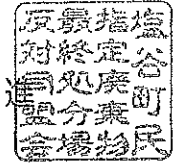 塩谷町民
指定廃棄物
最終処分場
反対同盟会
進